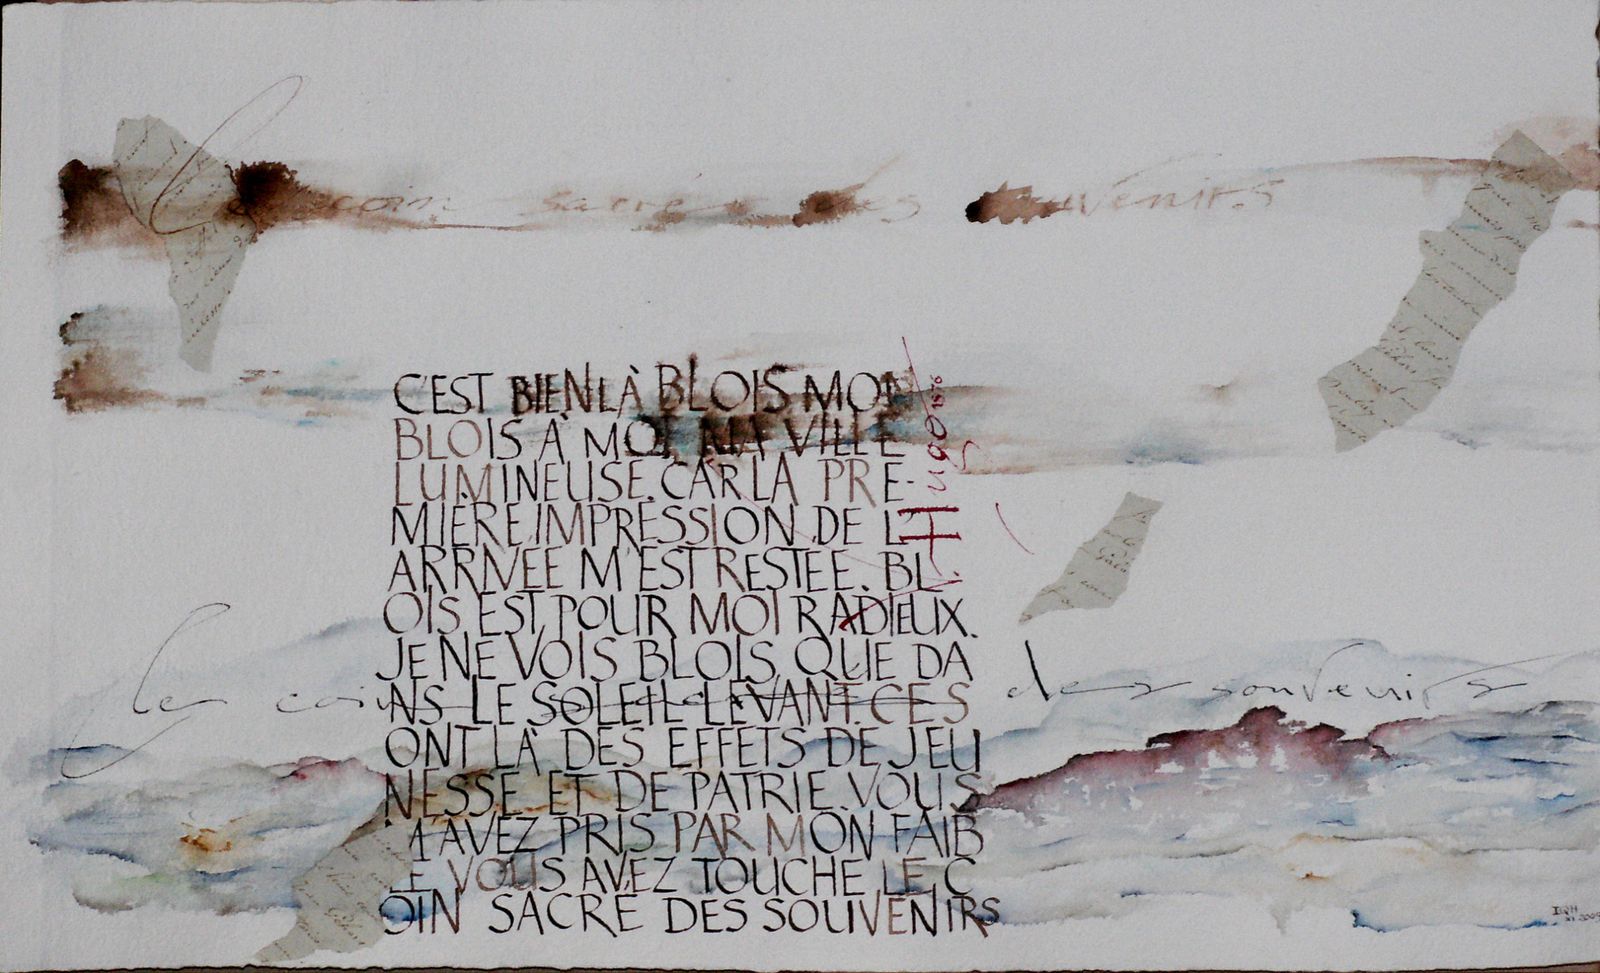 coin sacré des souvenirs
C'EST BIEN LÀ BLOIS MON
BLOIS À MOI MA VILLE
LUMINEUSE. CAR LA PRE-
MIÈRE IMPRESSION DE L'
ARRIVÉE M'EST RESTÉE. BL
OIS EST POUR MOI RADIEUX.
JE NE VOIS BLOIS QUE DA
NS LE SOLEIL LEVANT. CES
ONT LÀ DES EFFETS DE JEU
NESSE ET DE PATRIE. VOUS
M'AVEZ PRIS PAR MON FAIB
LE VOUS AVEZ TOUCHÉ LE C
OIN SACRÉ DES SOUVENIRS
Hugo
le coin des souvenirs